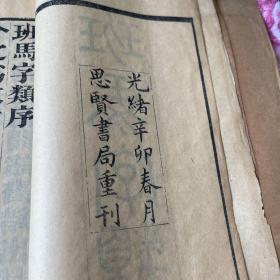 光緒辛卯春月
思賢書局重刊
班馬字類序